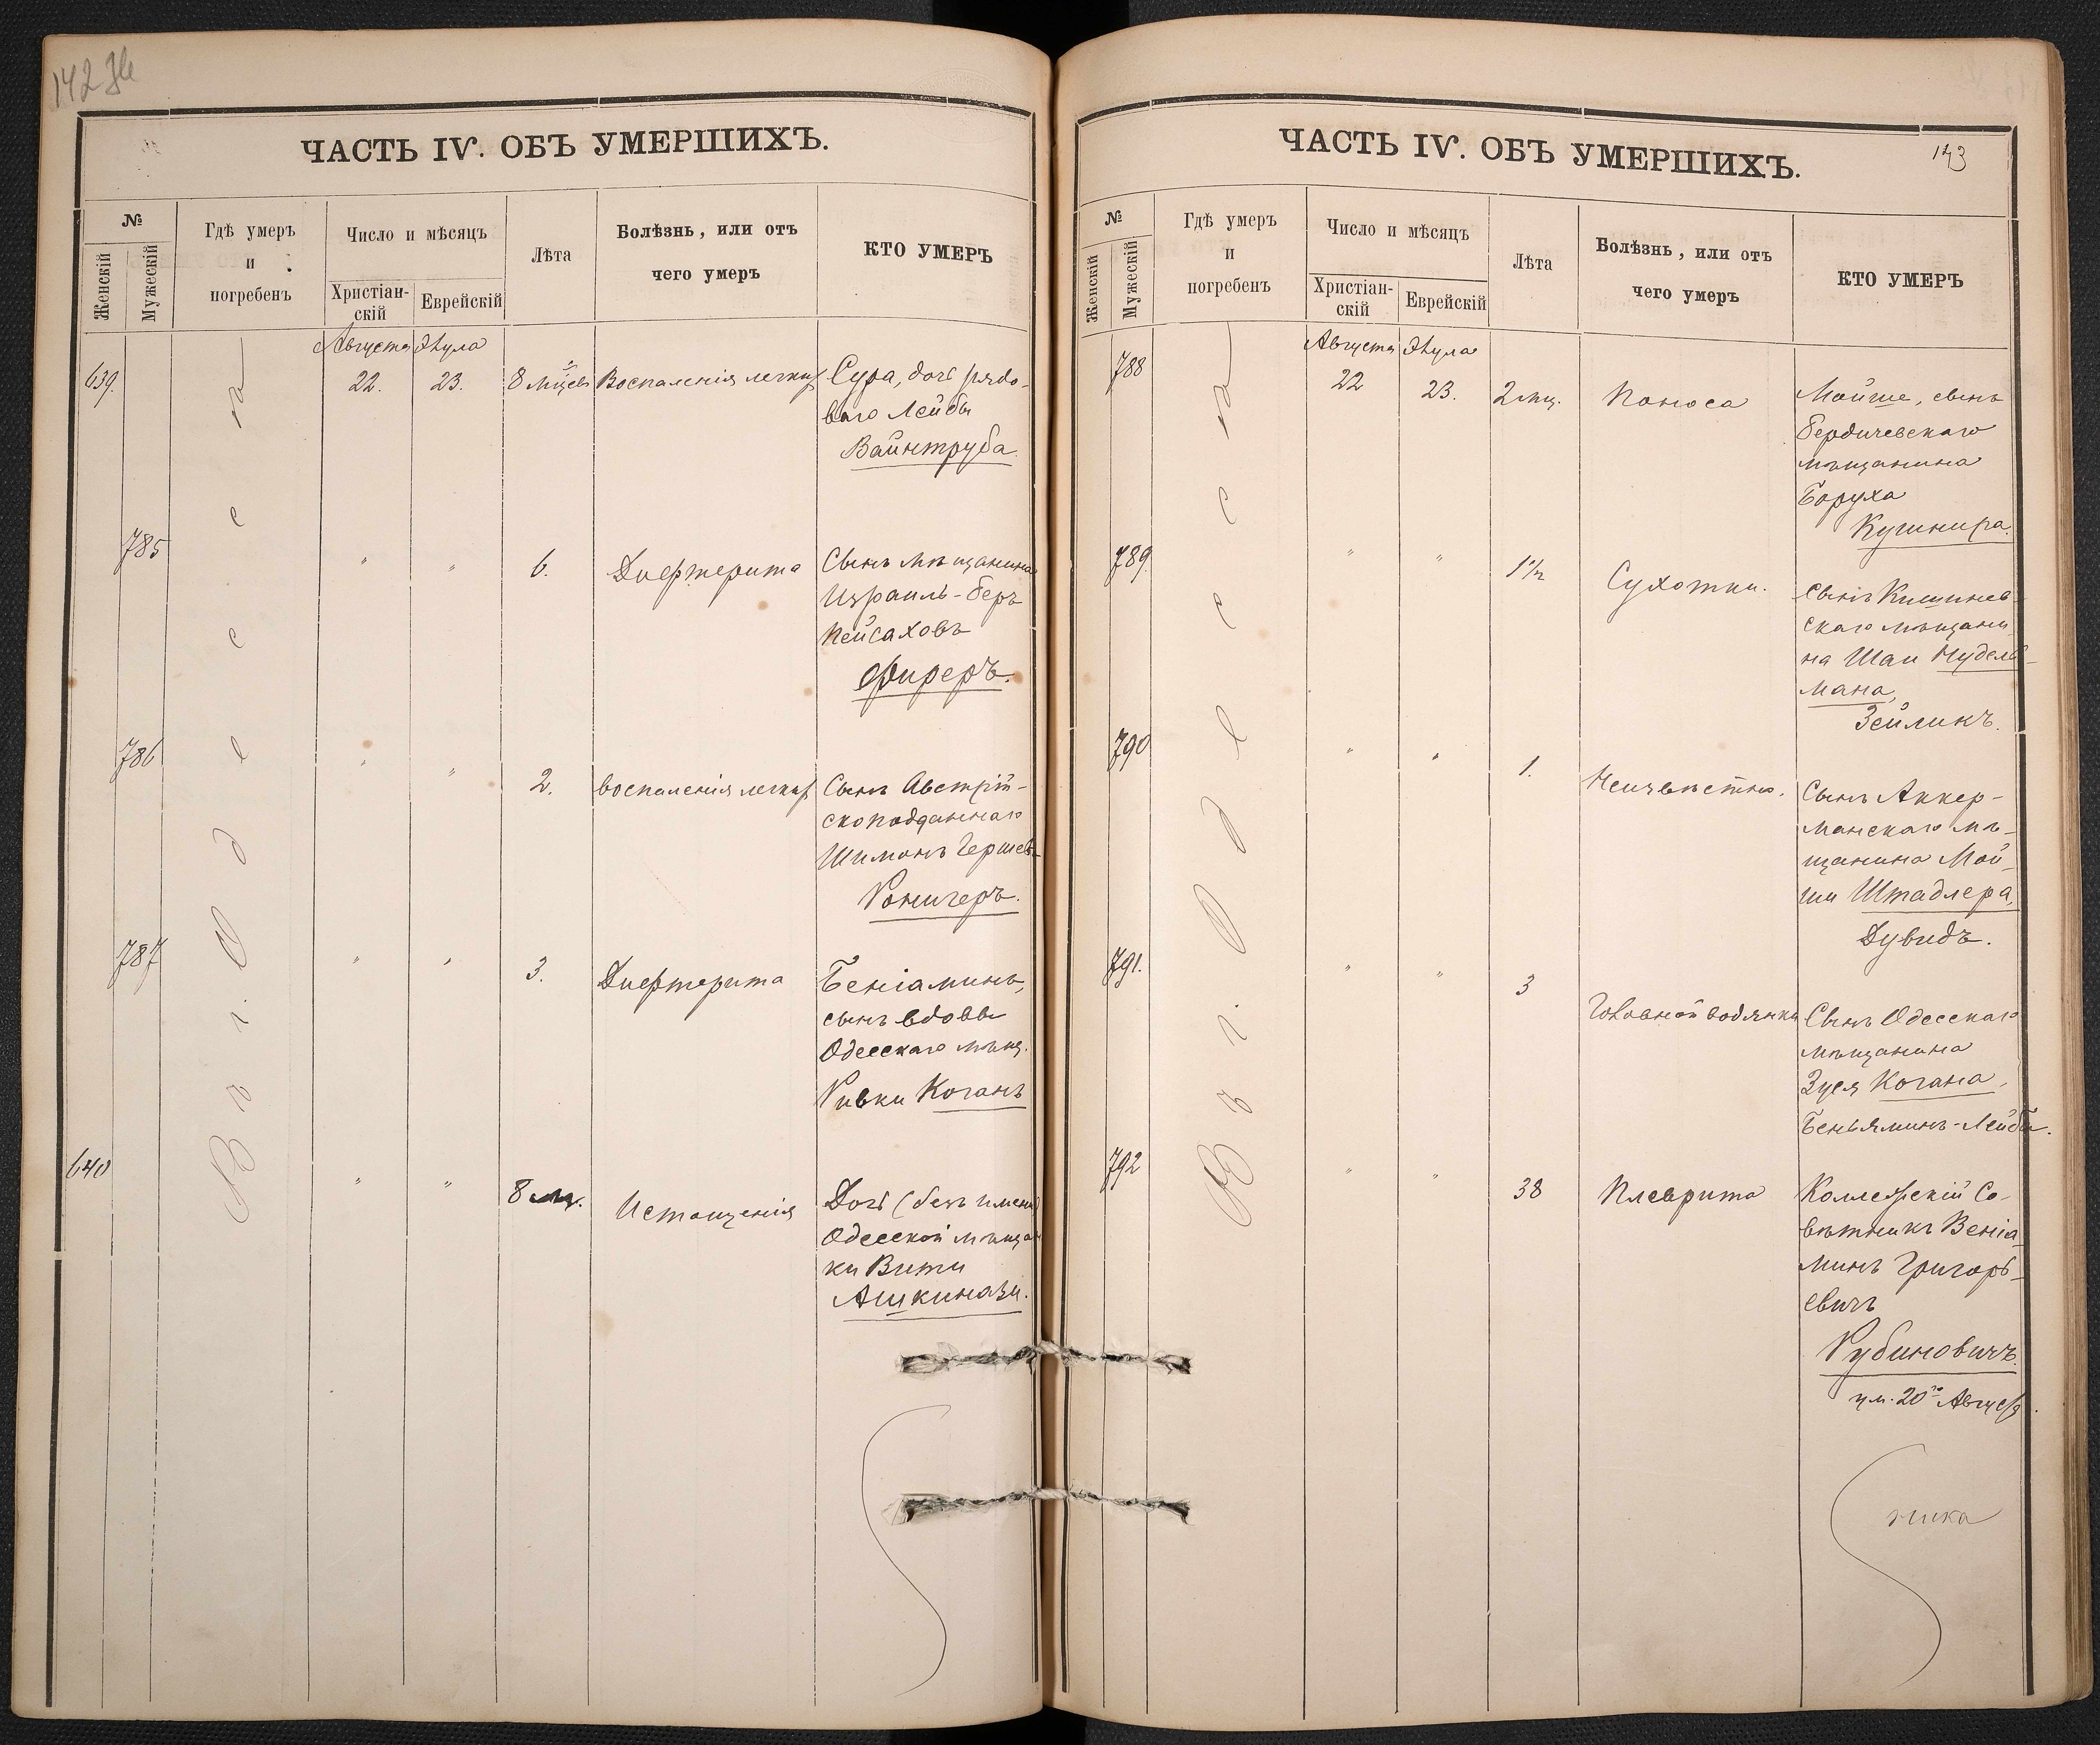 142
ЧАСТЬ IV. ОБЪ УМЕРШИХЪ.
№
Женскій
Мужескій
Гдѣ умеръ
и
погребенъ
Число и мѣсяцъ
Христіан-
скій
Еврейскій
Лѣта
Болѣзнь, или отъ
чего умеръ
КТО УМЕРЪ
Въ г. Одессѣ
Августа Элула
639. 22. 23. 8 Воспаленія легких Сура, дочь рядо-
ваго Лейбы
Вайнтруба.
785 " " 6. Дифтерита Сынъ мѣщанина
Израиль-Беръ
Пейсаховъ
Фиреръ.
786 " " 2. воспаленія легких Сынъ Австрій-
скоподданнаго
Шимонъ Гершевъ
Ронигеръ.
787 " " 3. Дифтерита Беніаминъ,
сынъ вдовы
Одесскаго мѣщ.
Ривки Коганъ
640 " " 8 м. Истощенія Дочь (безъ имени)
Одесской мѣщан
ки Виты
Ашкинази.
143
ЧАСТЬ IV. ОБЪ УМЕРШИХЪ.
№
Женскій
Мужескій
Гдѣ умеръ
и
погребенъ
Число и мѣсяцъ
Христіан-
скій
Еврейскій
Лѣта
Болѣзнь, или отъ
чего умеръ
КТО УМЕРЪ
Въ г. Одессѣ
Августа Элула
788 22 23. 2 мц. Поноса Мойше, сынъ
бердичевскаго
мѣщанина
Боруха
Кушнира.
789. " " 1½ Сухотки. Сынъ Кишинев-
скаго мѣщани
на Шаи Нудель-
мана,
Зейликъ.
790 " " 1. Неизвѣстно. Сынъ Аккер-
манскаго мѣ-
щанина Мой-
ши Штадлера,
Дувидъ.
791. " " 3 Головной водянки Сынъ Одесскаго
мѣщанина
Зуся Когана,
Беньяминъ-Лейба.
792 " " 38 Плеврита Коллежскій Со-
вѣтникъ Веніа-
минъ Григорь-
евичъ
Рубиновичъ.
ум. 20го Августа.